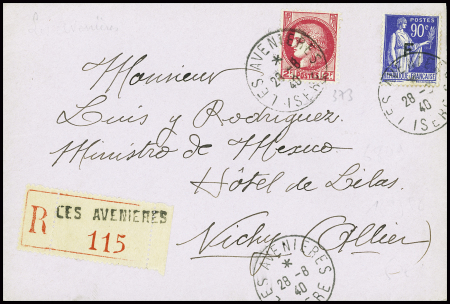 LES AVENIERES
*
28-8
40
ISERE
POSTES
90c
F
LES AVENIERES
28-8
40
ISERE
2F
373
Monsieur
Luis y Rodriguez.
Ministro de Mexico
Hôtel de Lilas.
Vichy (Allier)
R LES AVENIERES
115
LES AVENIERES
*
28-8
40
ISERE